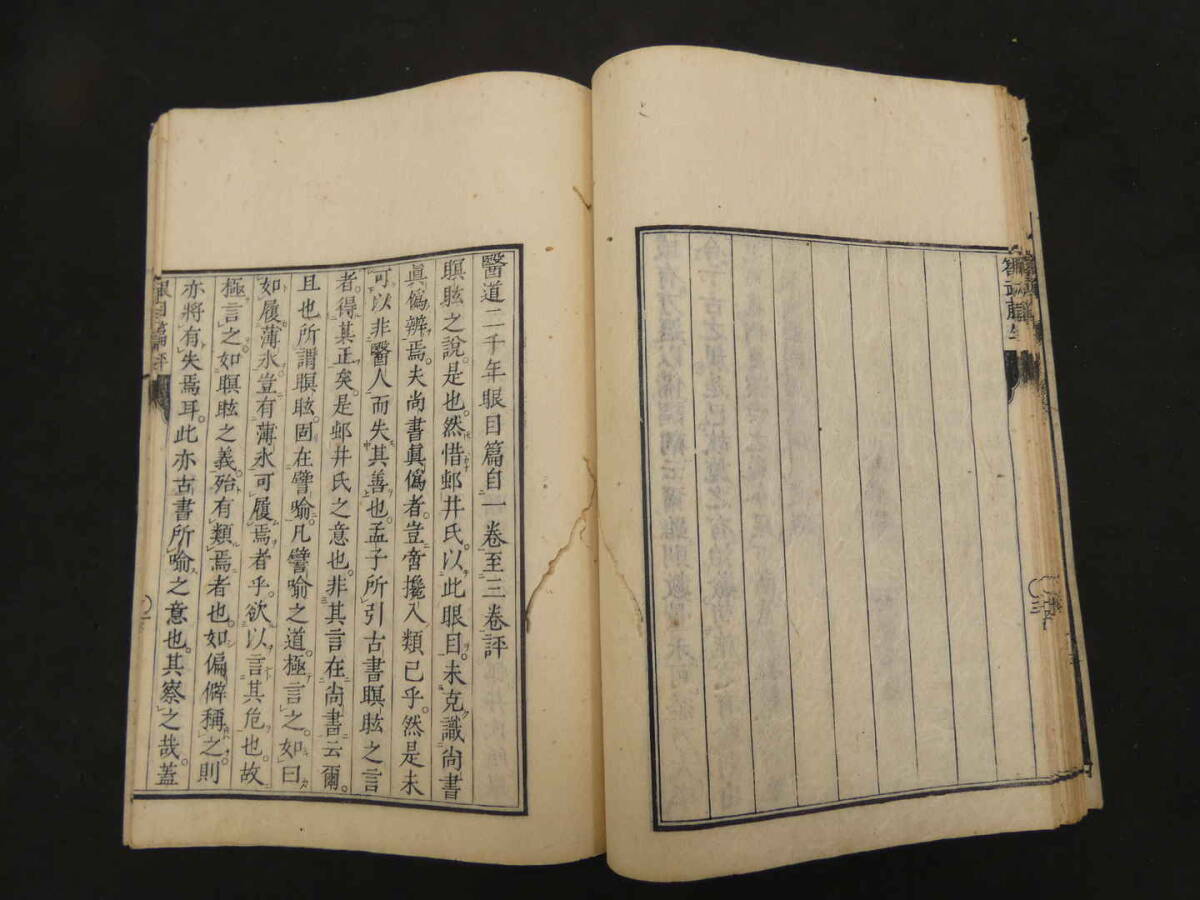 醫道二千年眼目篇自一卷至三卷評
瞑眩之說。是也。然惜邨井氏。以此眼目。未克識尚書
眞僞辨焉。夫尚書眞僞者。豈啻攙入類已乎。然是未
可以非醫人而失其善也。孟子所引古書瞑眩之言
者。得其正矣。是邨井氏之意也。非其言在尚書云爾。
且也所謂瞑眩。固在譬喩。凡譬喩之道。極言之。如曰
如履薄氷。豈有薄氷可履焉者乎。欲以言其危也。故
極言之。如瞑眩之義。殆有類焉者也。如偏僻稱之則
亦將有失焉耳。此亦古書所喩之意也。其察之哉。蓋
眼目篇評